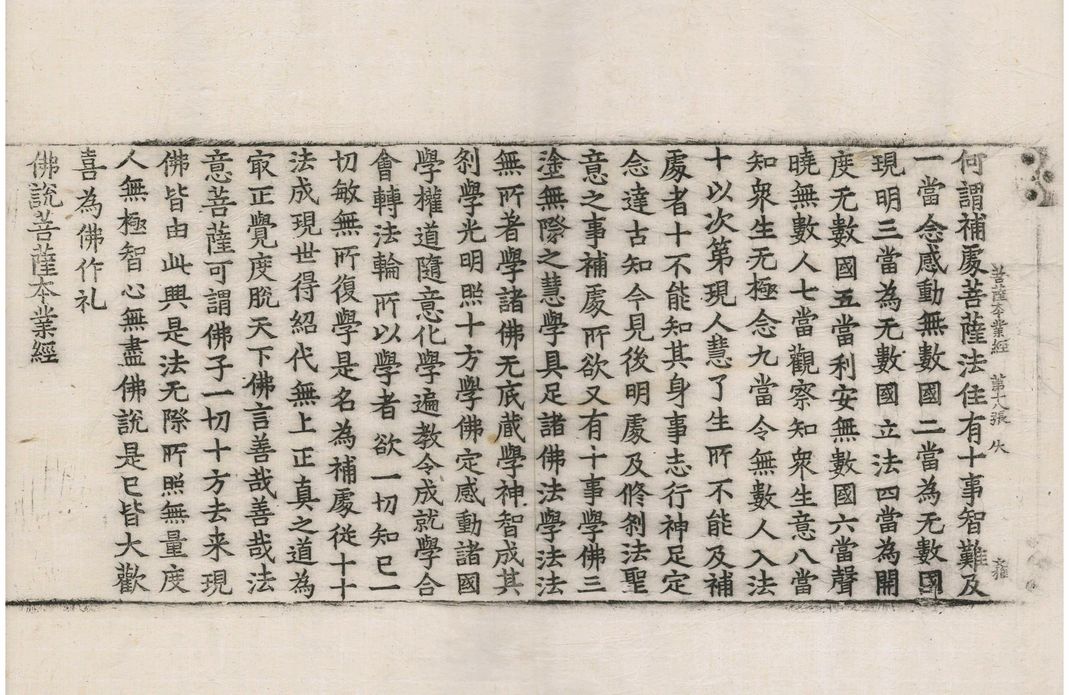 菩薩本業經 第十八張
何謂補處菩薩法住有十事智難及
一當念感動無數國二當為无數國
現明三當為无數國立法四當為開
度无數國五當利安無數國六當聲
曉無數人七當觀察知衆生意八當
知衆生无極念九當令無數人入法
十以次第現人慧了生所不能及補
處者十不能知其身事志行神足定
念達古知今見後明處及修剎法聖
意之事補處所欲又有十事學佛三
塗無際之慧學具足諸佛法學法法
無所著學諸佛无底藏學神智成其
剎學光明照十方學佛定感動諸國
學權道隨意化學遍教令成就學合
會轉法輪所以學者欲一切知已一
切敏無所復學是名為補處從十十
法成現世得紹代無上正真之道為
㝡正覺度脫天下佛言善哉善哉法
意菩薩可謂佛子一切十方去来現
佛皆由此興是法无際所照無量度
人無極智心無盡佛說是已皆大歡
喜為佛作礼
佛說菩薩本業經